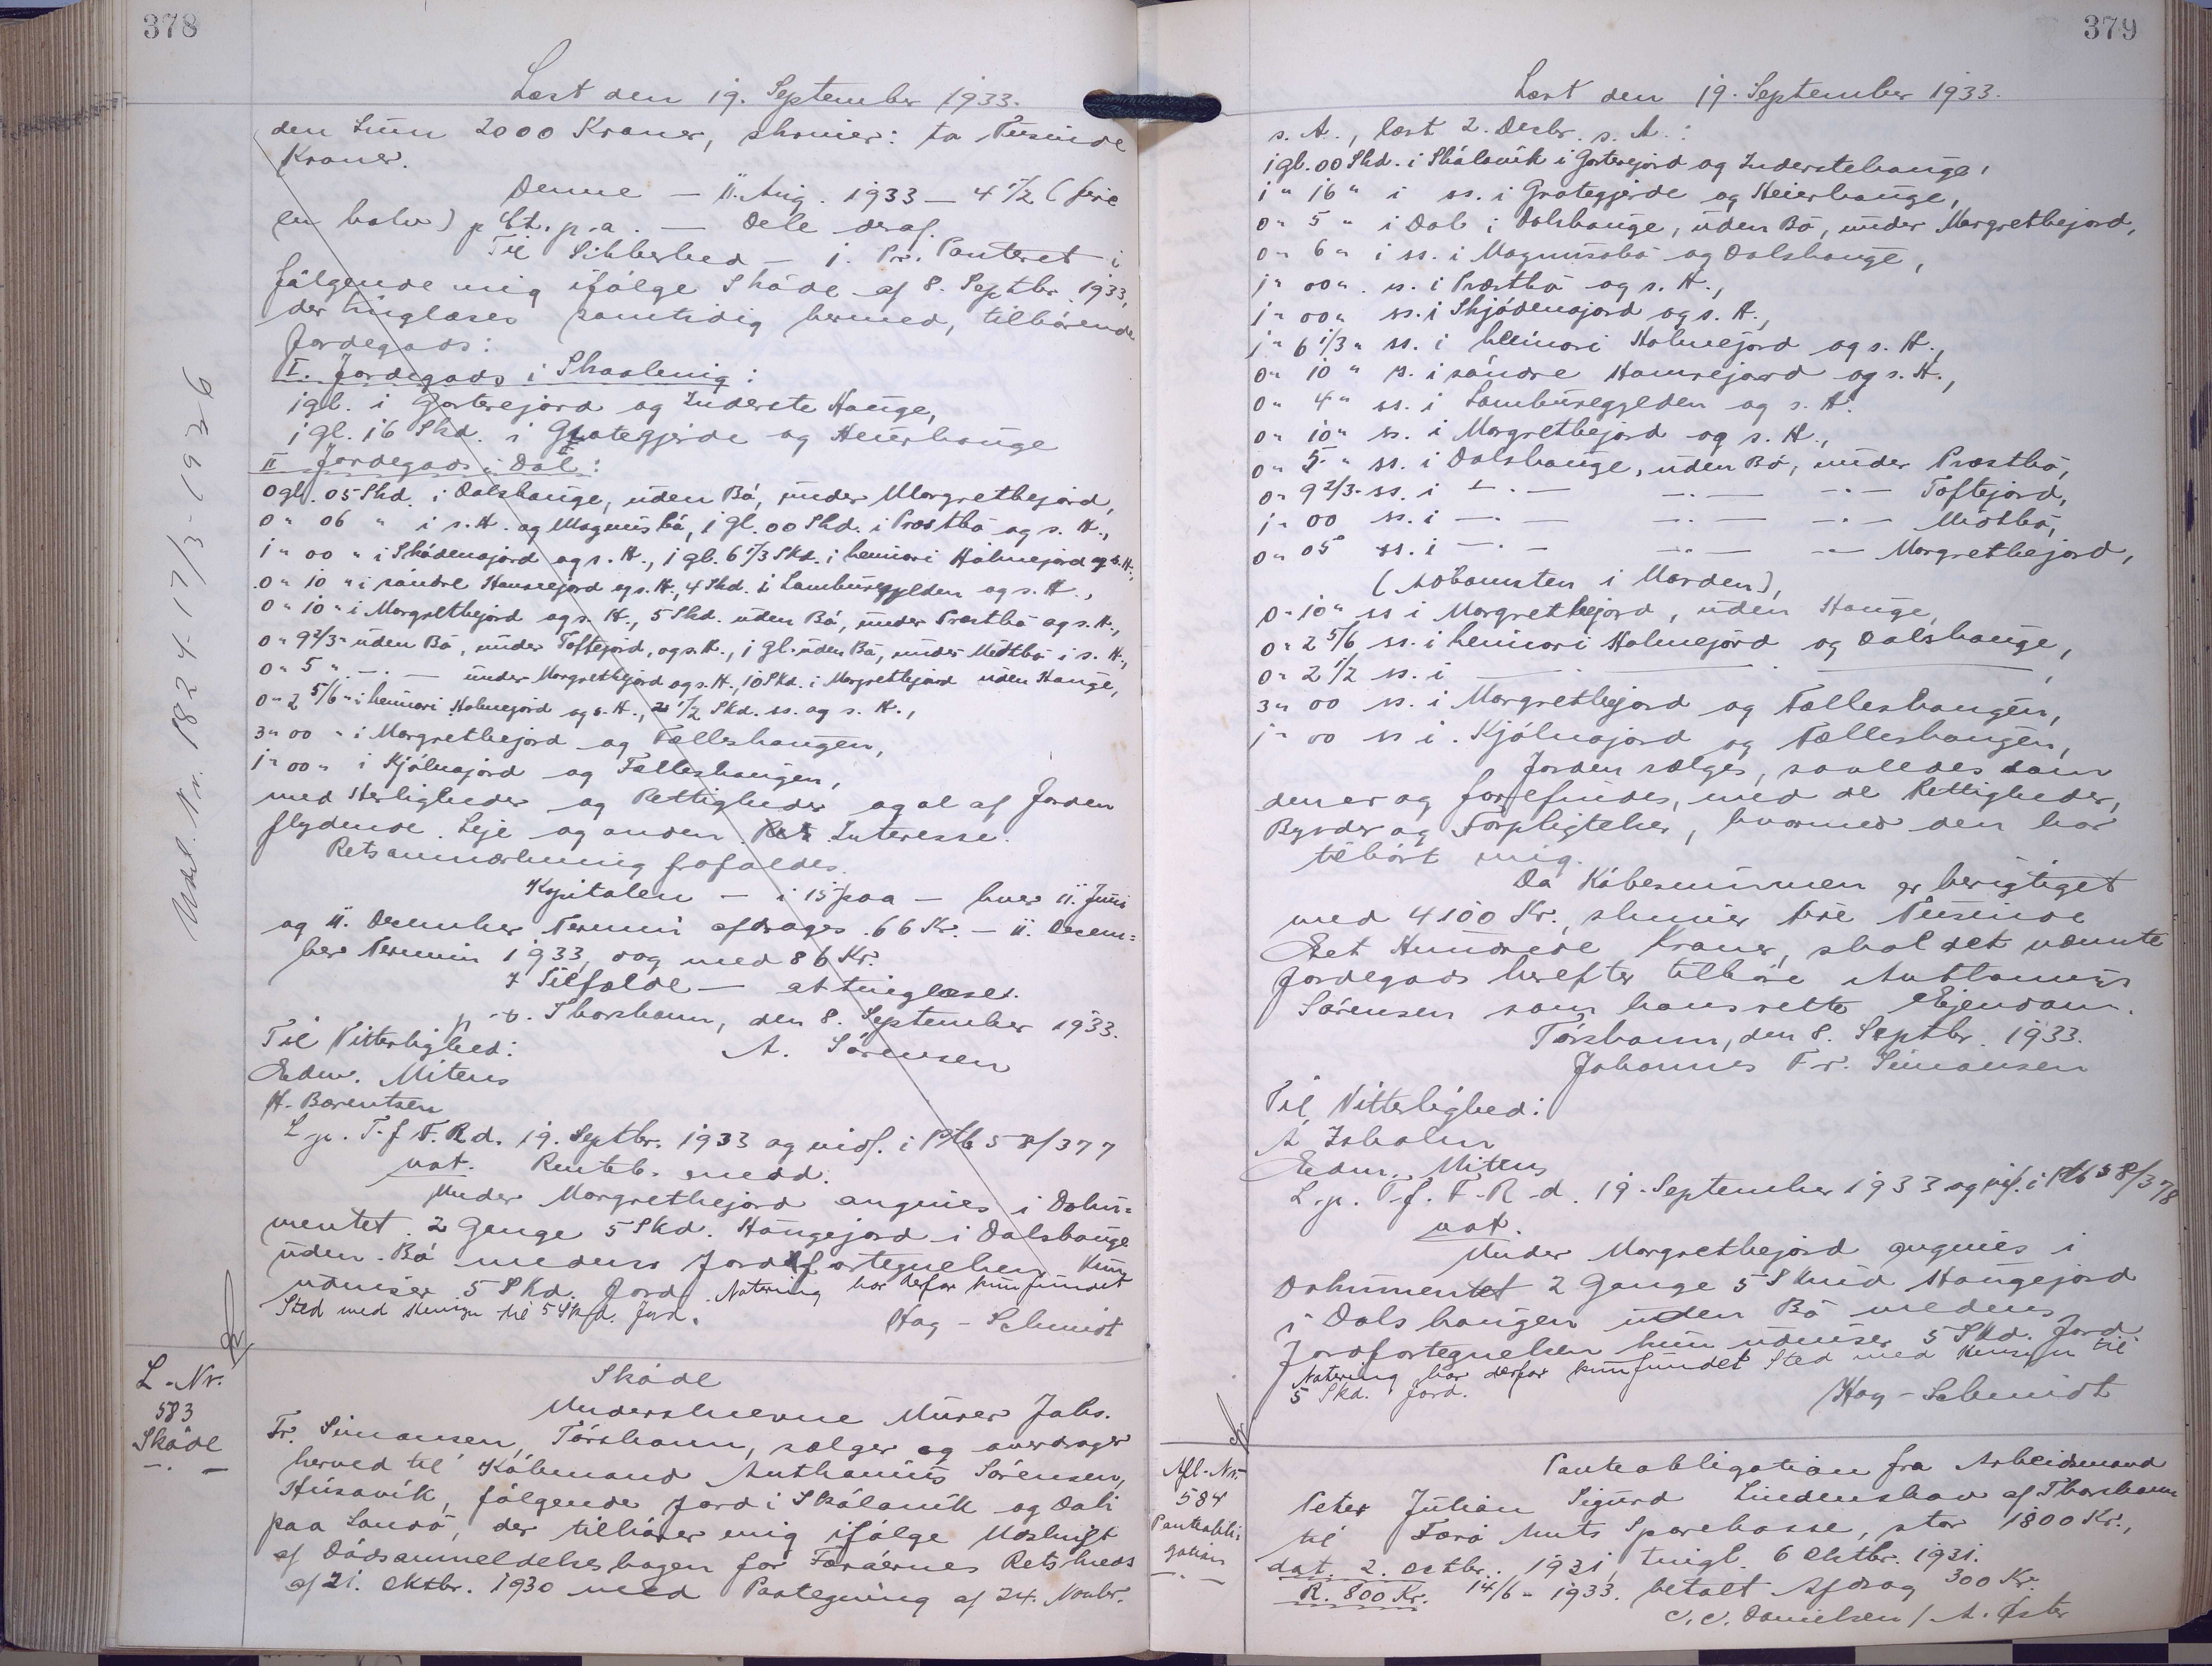 378
Læst den 19. September 1933.
den Sum 2000 Kroner, skriver: to Tusinde
Kroner.
Denne — 11. Aug. 1933 — 4 1/2 (fire
en halv) p Ct. p. a. — Dele deraf.
Til Sikkerhed — 1. Pr. Panteret i
følgende mig ifølge Skøde af 8. Septbr. 1933,
der tinglæses samtidig hermed, tilhørende
Jordegods:
I. Jordegods i Skaalevig:
1 gl. i Gorterejord og Inderste Hauge,
1 gl. 16 Skd. i Grotegjerde og Heierhauge
II Jordegods i Dal:
0 gl. 05 Skd. i Dalshauge, uden Bø, under Margrethejord,
0 " 06 " i s. H. og Magnusbø, 1 gl. 00 Skd. i Præstbø og s. H.,
1 " 00 " i Skødenajord og s. H., 1 gl. 6 1/3 Skd. i heimari Holmejord og s. H.,
0 " 10 " i søndre Hamrejord og s. H., 4 Skd. i Lamburegylden og s. H.,
0 " 10 " i Margrethejord og s. H., 5 Skd. uden Bø, under Præstbø og s. H.,
0 " 9 2/3 " uden Bø, under Toftejord, og s. H., 1 gl. uden Bø, under Midtbø i s. H.,
0 " 5 " — . — under Margrethejord og s. H., 10 Skd. i Margrethejord uden Hauge,
0 " 2 5/6 " i heimari Holmejord og s. H., 2 1/2 Skd. ss. og s. H.,
3 " 00 " i Margrethejord og Fælleshaugen,
1 " 00 " i Kjølnajord og Fælleshaugen,
med Herligheder og Rettigheder og al af Jorden
flydende Leje og anden Interesse.
Retsanmærkning frafaldes.
Kapitalen — i 15 paa — hver 11. Juni
og 11. December Termin afdrages 66 Kr. — 11. Decem=
ber Termin 1933, dog med 86 Kr.
I Tilfælde — at tinglæses.
p. t. Thorshavn, den 8. September 1933.
Til Vitterlighed: A. Sørensen
Edw. Mitens
H. Barentsen
L. p. T. f. F. R. d. 19. Septbr. 1933 og vidf. i Ptb 58/377
not. Renteb. medd.
Under Margrethejord angives i Doku=
mentet 2 Gange 5 Skd. Haugejord i Dalshauge
uden Bø medens Jordefortegnelsen kun
udviser 5 Skd. Jord. Notering har derfor kun fundet
Sted med Hensyn til 5 Skd. Jord.
Hag-Schmidt
Udsl. Nr. 1824 - 17/3 - 1936
L.-Nr.
583
Skøde
Skøde
Underskrevne Murer Johs.
Fr. Simonsen, Tórshavn, sælger og overdrager
herved til Købmand Anthonius Sørensen,
Húsavík, følgende Jord i Skálavík og Dali
paa Sandø, der tilhører mig ifølge Udskrift
af Dødsanmeldelsesbogen for Færøernes Retskreds
af 21. Oktbr. 1930 med Paategning af 24. Novbr.
379
Læst den 19. September 1933.
s. A., læst 2. Decbr. s. A.:
1 gl. 00 Skd. i Skálavík i Gorterejord og Inderstehauge,
1 " 16 " i ss. i Grotegjerde og Heierhauge,
0 " 5 " i Dal i Dalshauge, uden Bø, under Margrethejord,
0 " 6 " i ss. i Magnusbø og Dalshauge,
1 " 00 " ss. i Præstbø og s. H.,
1 " 00 " ss. i Skjódenajord og s. H.,
1 " 6 1/3 " ss. i heimari Holmejord og s. H.,
0 " 10 " ss. i søndre Hamrejord og s. H.,
0 " 4 " ss. i Lamburegylden og s. H.
0 " 10 " ss. i Margrethejord og s. H.,
0 " 5 " ss. i Dalshauge, uden Bø, under Præstbø,
0 " 9 2/3 " ss. i — . — — . — — . — Toftejord,
1 " 00 ss. i — . — — . — — . — Midtbø,
0 " 05 ss. i — . — — . — — . — Margrethejord,
( i Marden),
0 " 10 " ss i Margrethejord, uden Hauge,
0 " 2 5/6 ss. i heimari Holmejord og Dalshauge,
0 " 2 1/2 ss. i ——— . ———,
3 " 00 ss. i Margrethejord og Fælleshaugen,
1 " 00 ss i Kjølnajord og Fælleshaugen,
Jorden sælges, saaledes som
den er og forefindes, med de Rettigheder,
Byrder og Forpligtelser, hvormed den har
tilhørt mig.
Da Købesummen er berigtiget
med 4100 Kr., skriver fire Tusinde
Eet Hundrede Kroner, skal det nævnte
Jordegods herefter tilhøre Anthonius
Sørensen som hans rette Ejendom.
Tórshavn, den 8. Septbr. 1933.
Johannes Fr. Simonsen
Til Vitterlighed:
A Isholm
Edw. Mitens
L. p. T. f. F. R. d. 19. September 1933 og vidf. i Ptb 58/378
not.
Under Margrethejord angives i
Dokumentet 2 Gange 5 Skind Haugejord
i Dalshaugen uden Bø medens
Jordfortegnelsen kun udviser 5 Skd. Jord
Notering har derfor kun fundet Sted med Hensyn til
5 Skd. Jord.
Hag-Schmidt
Afl.-Nr.
584
Panteobli-
gation
Panteobligation fra Arbeidsmand
Peter Julian Sigurd Lindenskov af Thorshavn
til Færø Amts Sparekasse, stor 1800 Kr.,
dat. 2. Octbr. 1931, tingl. 6 Oktbr. 1931.
R. 800 Kr. 14/6 - 1933. betalt Afdrag 300 Kr.
C. C. Danielsen / A. Øster